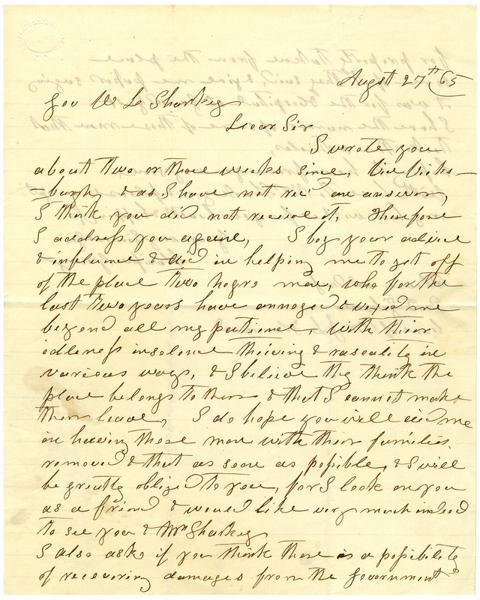 Augst 27th /65
Gov W L Sharkey
Dear Sir
I wrote you
about two or three weeks since, via Vicks-
-burgh, & as I have not recd an answer,
I think you did not receive it, therefore
I address you again, I beg your advice
& influence & aid in helping me to get off
of the place two negro men, who for the
last two years have annoyed & vexed me
beyond all my patience, with their
idleness insolence thieving & rascality in
various ways, & I believe they think the
place belongs to them & that I cannot make
them leave, I do hope you will aid me
in having these men with their families
removed & that as soon as possible, & I will
be greatly obliged to you, for I look on you
as a friend & would like very much indeed
to see you & Mrs Sharkey
I also ask if you think there is a possibility
of recovering damages from the Government